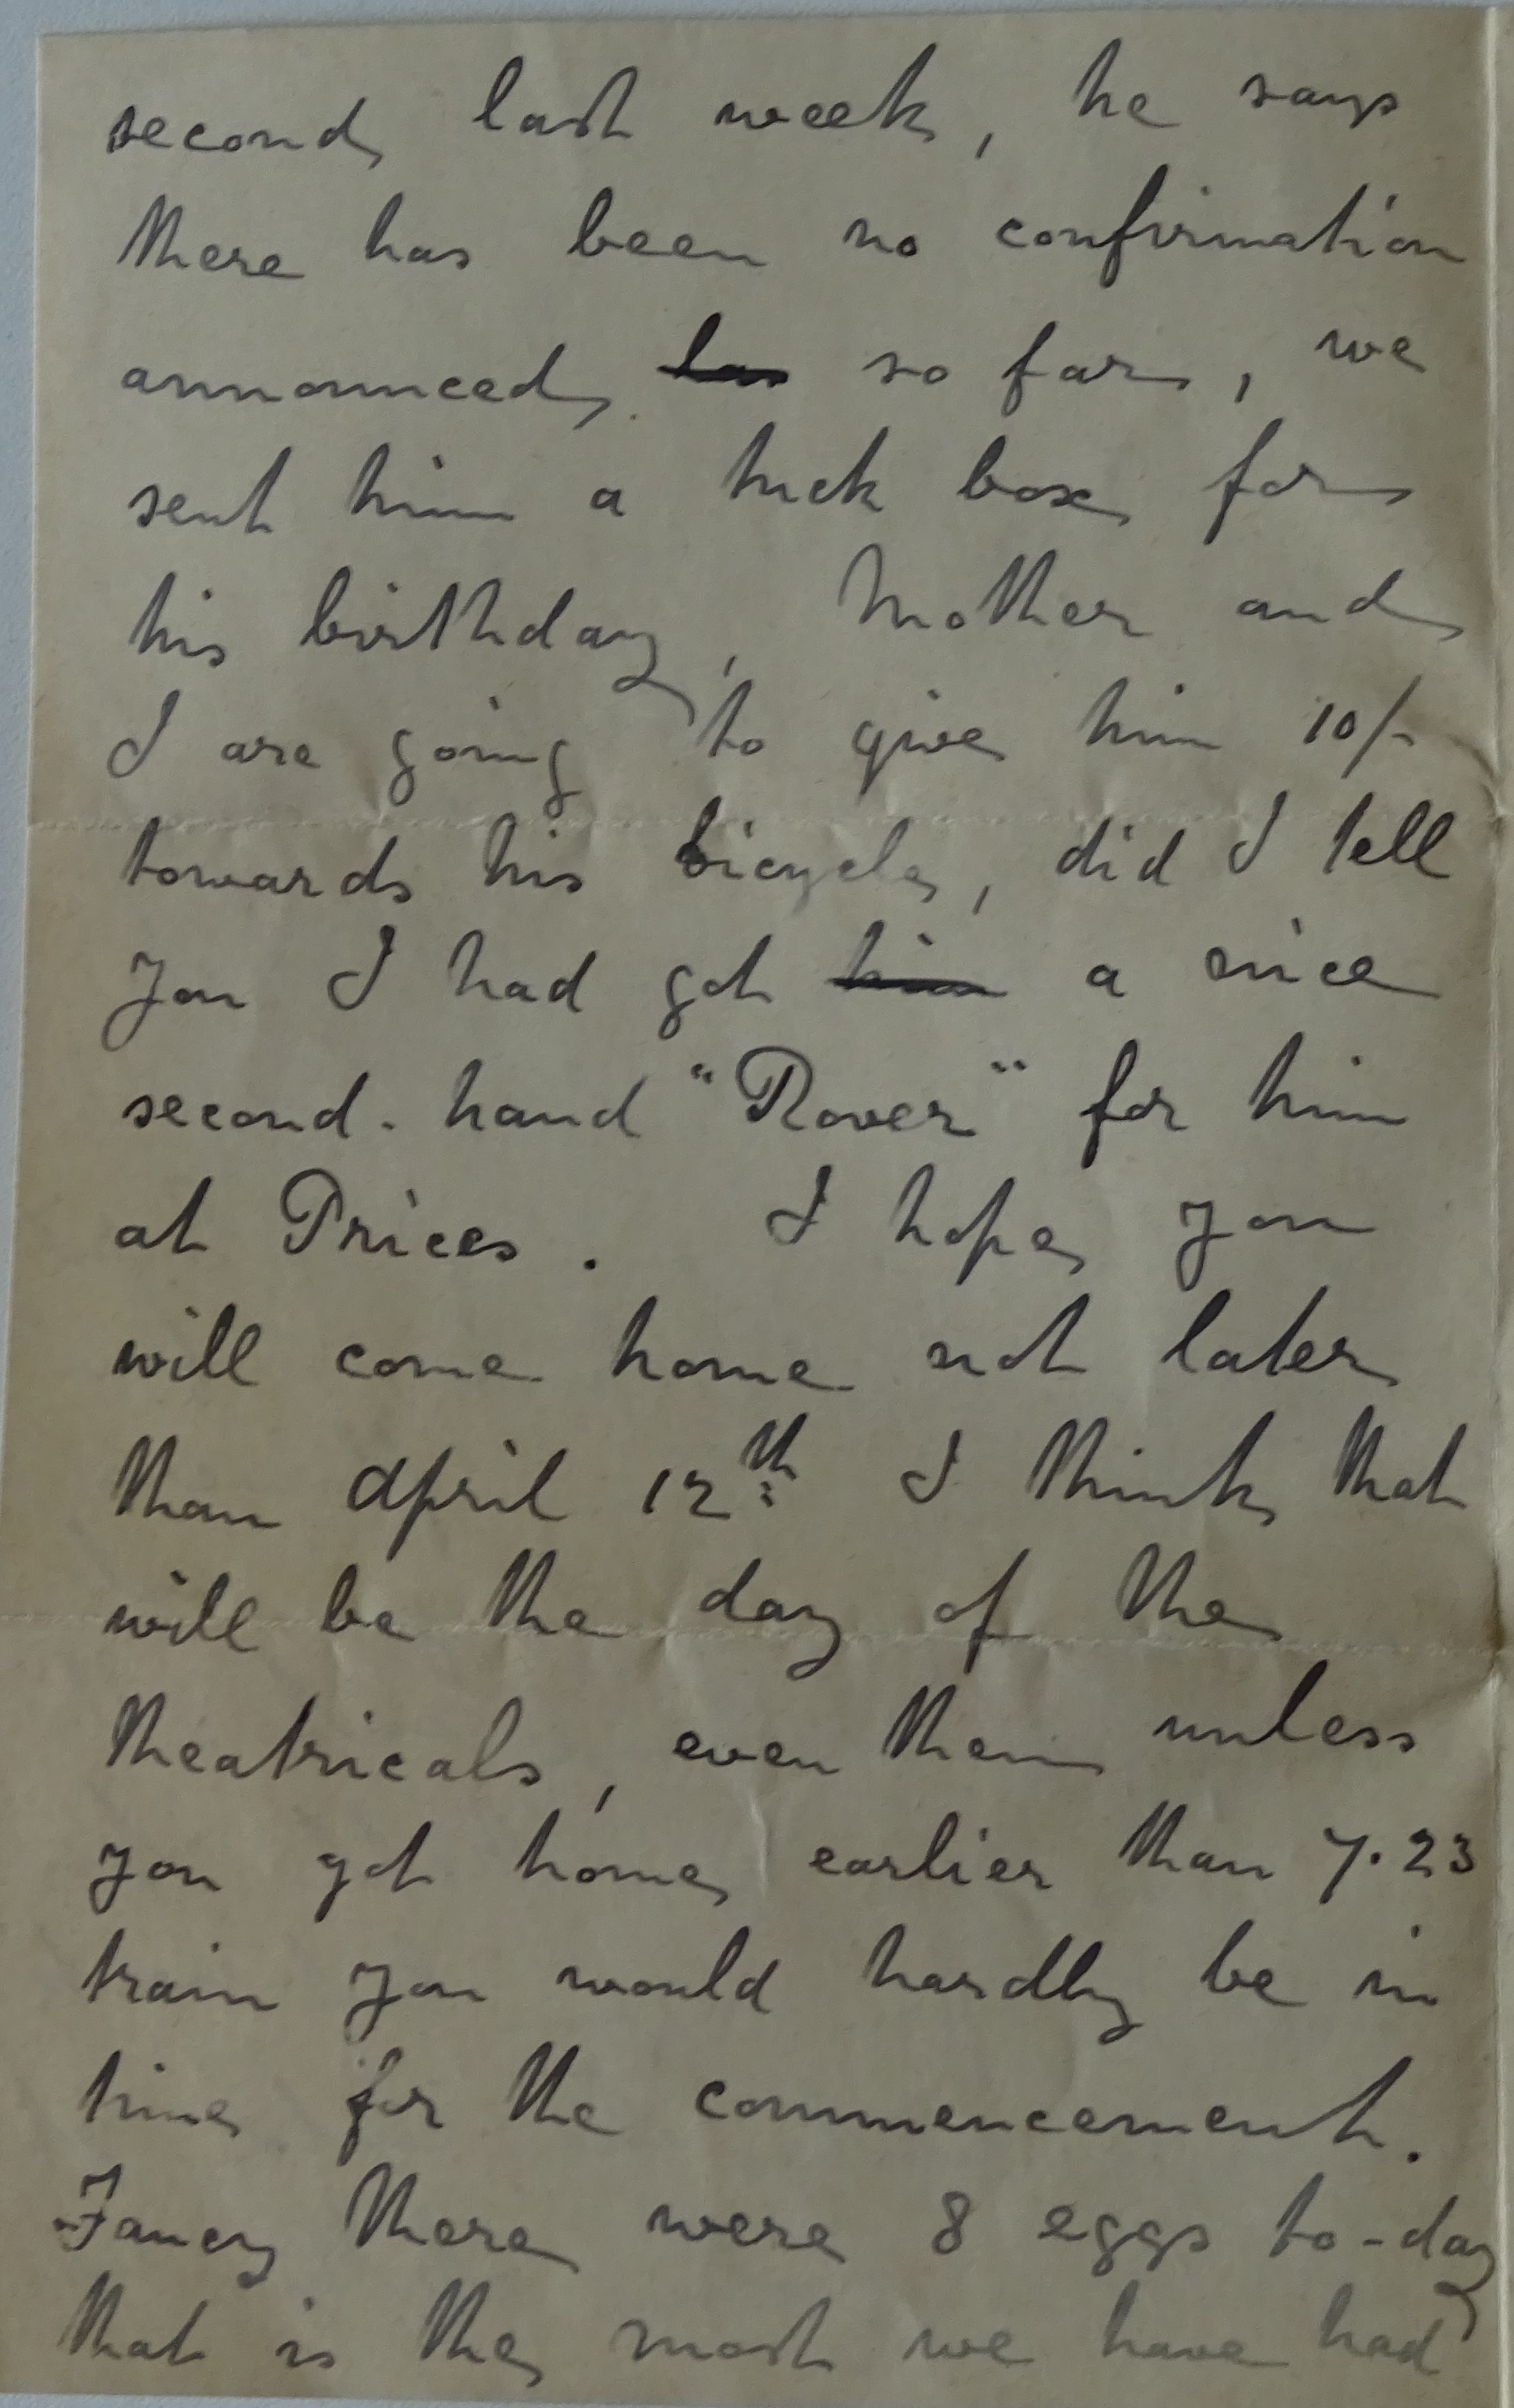 second last week, he says
there has been no confirmation
announced. las so far, we
sent him a tuck box for
his birthday, Mother and
I are going to give him 10/-
towards his bicycle, did I tell
you I had got him a nice
second-hand "Rover" for him
at Prices. I hope you
will come home not later
than April 12th I think that
will be the day of the
theatricals, even then unless
you got home earlier than 7.23
train you would hardly be in
time for the commencement.
Fancy there were 8 eggs to-day
that is the most we have had